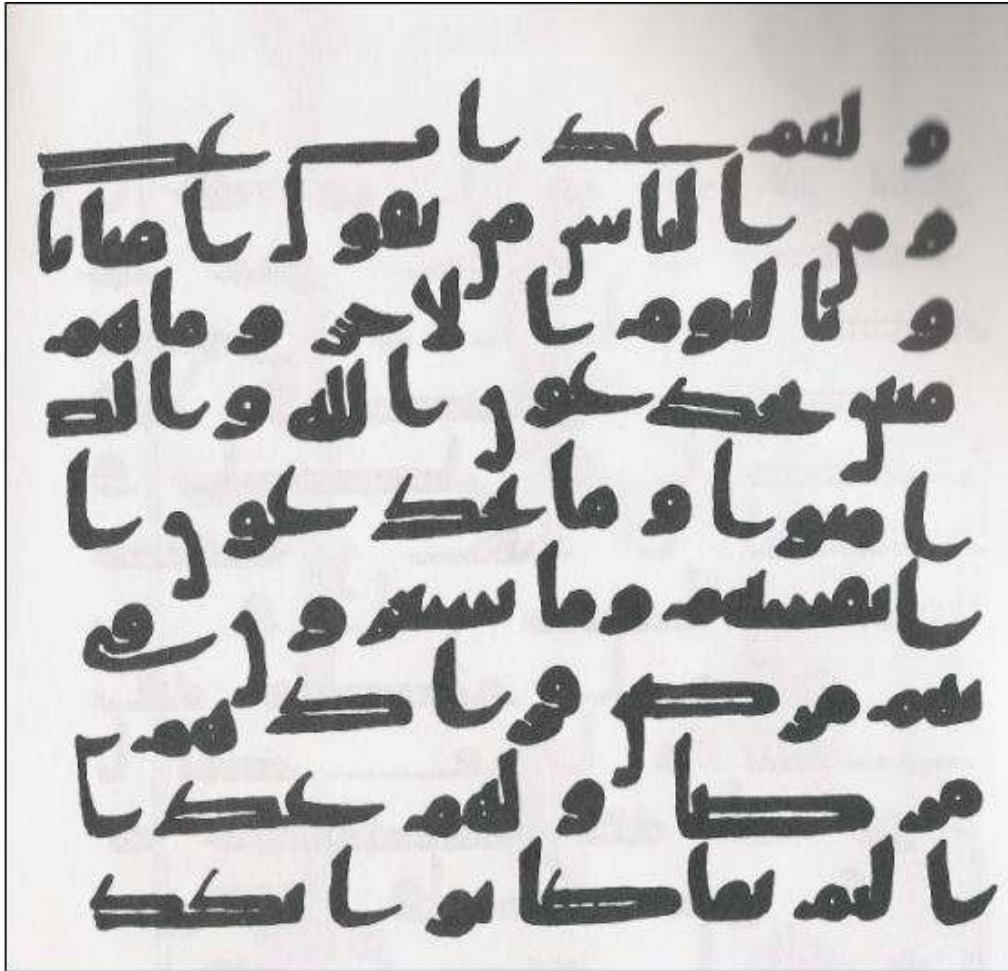 و لهم عذاب عظ
ومن الناس من يقول امنا با
و باليوم الاخر وما هم
منين يخدعون الله والذ
امنوا وما يخدعون ا
انفسهم وما يشعرون في
بهم مرض فزادهم ا
مرضا ولهم عذا
اليم بما كانوا يكذ